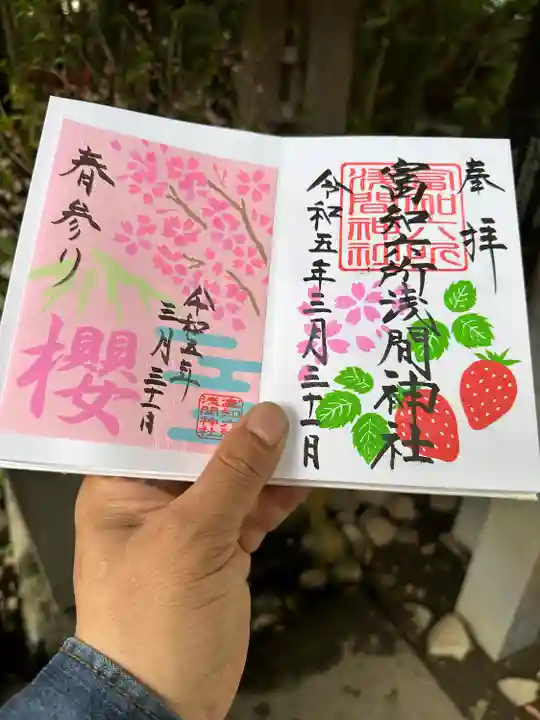 奉拝
富知六所浅間神社
令和五年三月三十一日
富知六所
浅間神社
春参り
櫻
令和五年
三月三十一日
富知六所
浅間神社